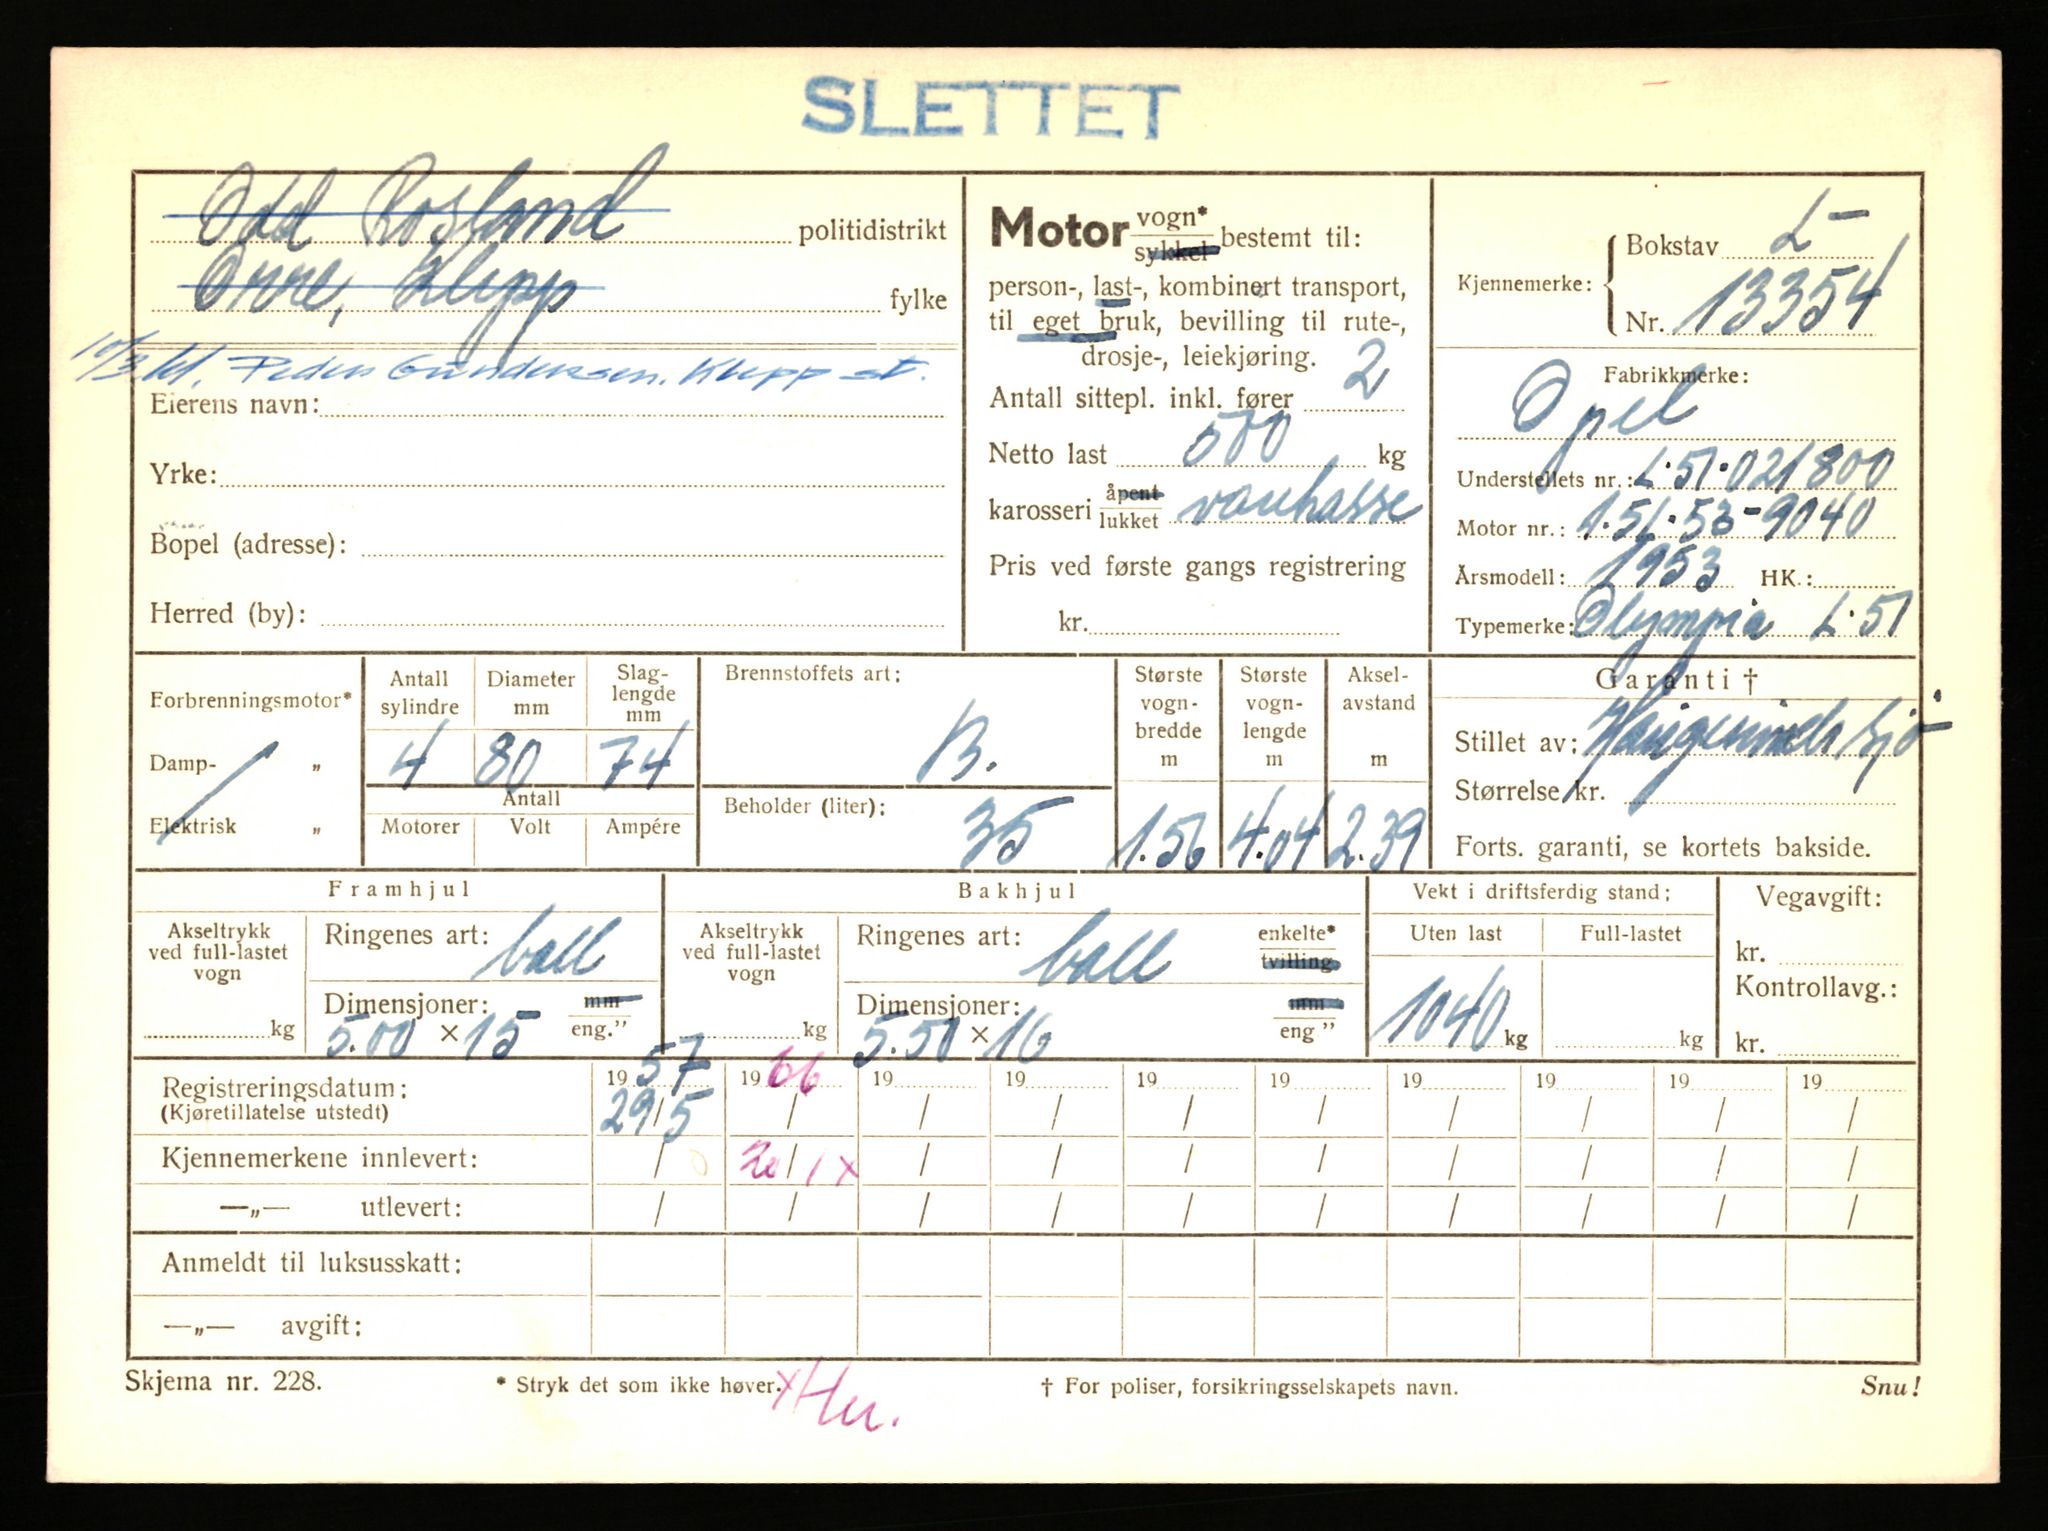 SLETTET
Odd Rosland politidistrikt
Orre, Klepp fylke
10/3.61. Peder Gundersen. Klepp st.
Eierens navn:
Yrke:
Bopel (adresse):
Herred (by):
Motor vogn* sykkel bestemt til:
person-, last-, kombinert transport,
til eget bruk, bevilling til rute-,
drosje-, leiekjøring.
Antall sittepl. inkl. fører 2
Netto last 500 kg
karosseri åpent lukket varekasse
Pris ved første gangs registrering
kr.
Kjennemerke: Bokstav L-
Nr. 13354
Fabrikkmerke:
Opel
Understellets nr.: L.51.021800
Motor nr.: 1.51.53-9040
Årsmodell: 1953 HK.:
Typemerke: Olympia L.51
Garanti †
Stillet av: Sjö
Størrelse kr.
Forts. garanti, se kortets bakside.
Forbrenningsmotor*
Damp- „
Elektrisk „
Antall sylindre 4
Diameter mm 80
Slag-lengde mm 74
Antall
Motorer Volt Ampére
Brennstoffets art: B.
Beholder (liter): 35
Største vogn-bredde m 1.56
Største vogn-lengde m 4.04
Aksel-avstand m 2.39
Framhjul
Akseltrykk ved full-lastet vogn kg
Ringenes art: ball
Dimensjoner: mm
5.00 × 15 eng.”
Bakhjul
Akseltrykk ved full-lastet vogn kg
Ringenes art: ball enkelte* tvilling
Dimensjoner: mm
5.50 × 16 eng”
Vekt i driftsferdig stand:
Uten last Full-lastet
1040 kg kg
Vegavgift:
kr.
Kontrollavg.:
kr.
Registreringsdatum: 19 57 19 66 19 19 19 19 19 19 19 19
(Kjøretillatelse utstedt) 29/5 / / / / / / / / /
Kjennemerkene innlevert: / / 1 x / / / / / / / /
—„— utlevert: / / / / / / / / / /
Anmeldt til luksusskatt:
—„— avgift:
Skjema nr. 228. * Stryk det som ikke høver. † For poliser, forsikringsselskapets navn. Snu!